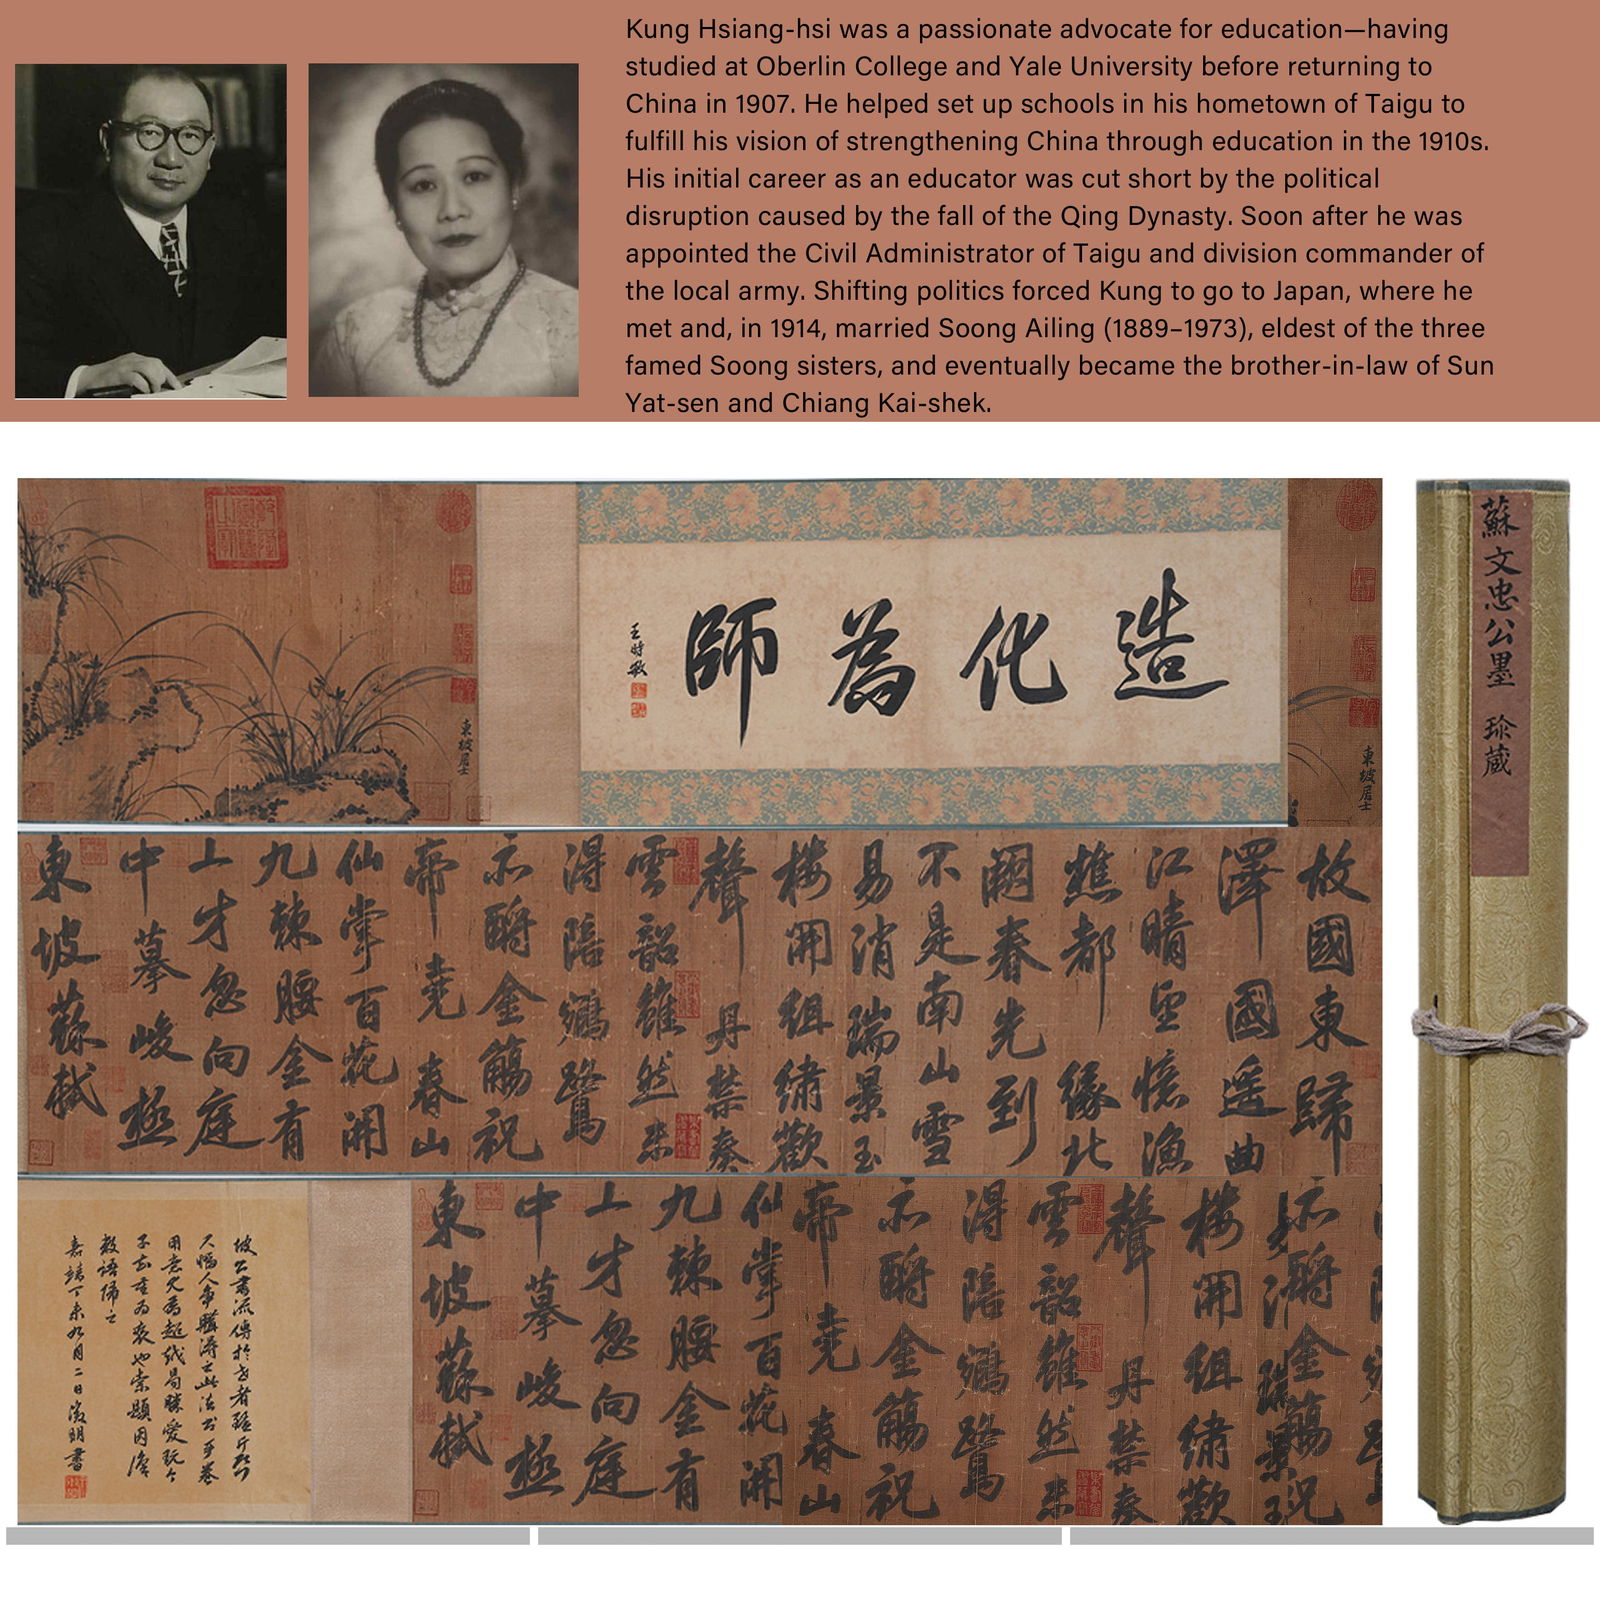 Kung Hsiang-hsi was a passionate advocate for education—having
studied at Oberlin College and Yale University before returning to
China in 1907. He helped set up schools in his hometown of Taigu to
fulfill his vision of strengthening China through education in the 1910s.
His initial career as an educator was cut short by the political
disruption caused by the fall of the Qing Dynasty. Soon after he was
appointed the Civil Administrator of Taigu and division commander of
the local army. Shifting politics forced Kung to go to Japan, where he
met and, in 1914, married Soong Ailing (1889–1973), eldest of the three
famed Soong sisters, and eventually became the brother-in-law of Sun
Yat-sen and Chiang Kai-shek.
東坡居士
造化為師
王時敏
東坡居士
蘇文忠公墨 珍藏
故國東歸
澤國遥曲
江晴望憶漁
樵都緣北
闕春光到
不是南山雪
易消瑞景玉
樓開組繡歡
聲丹禁奏
雲韶雖然
得陪鵷鷺
亦酹金觴祝
帝堯春山
仙掌百花開
九棘腰金有
上才忽向庭
中摹峻極
東坡蘇軾
亦酹金觴祝
樓開組繡歡
聲丹禁奏
雲韶雖然
得陪鵷鷺
亦酹金觴祝
帝堯春山
仙掌百花開
九棘腰金有
上才忽向庭
中摹峻極
東坡蘇軾
坡公書流傳於世者雖片紙
尺幅人爭購得之此法書手卷
用意尤為超逸局勝愛玩之
索題因
數語歸之
嘉靖丁未九月二日徵明書